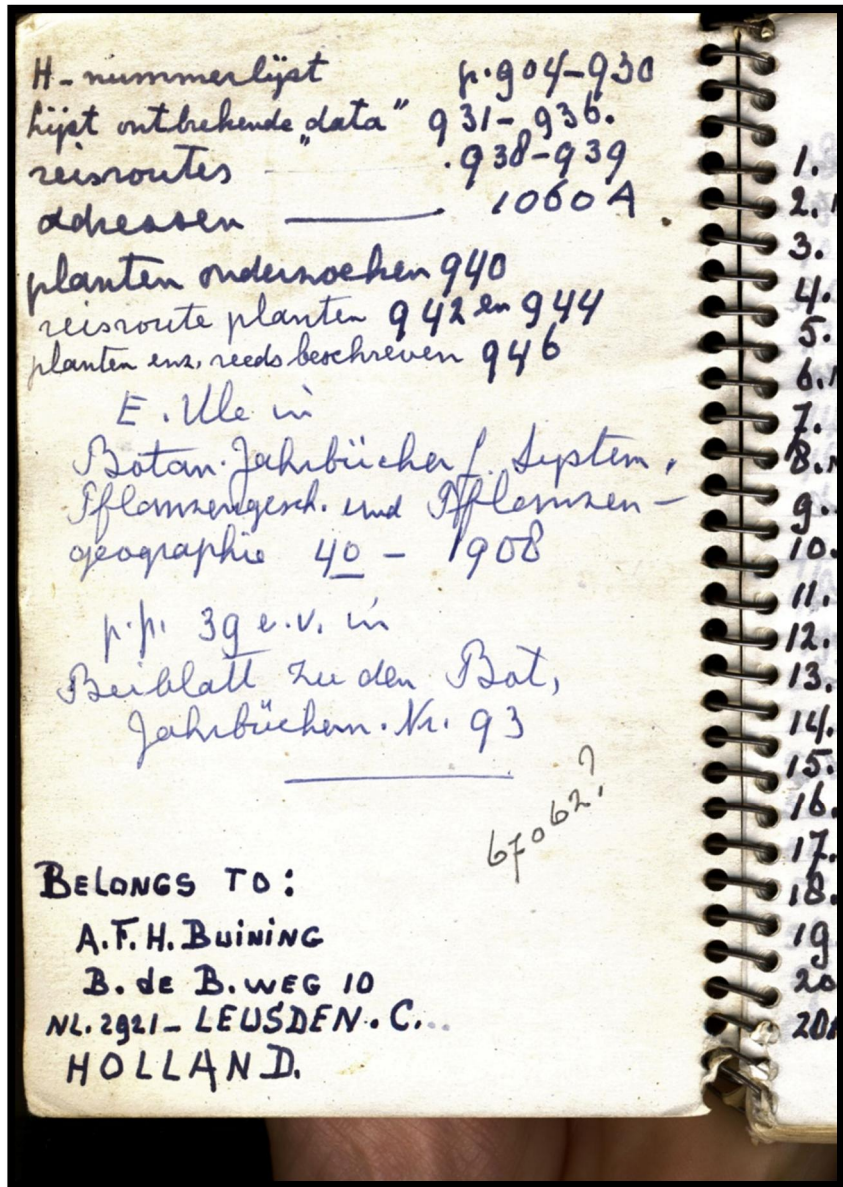 H-nummerlijst p. 904-930
Lijst ontbrekende „data” 931-936.
reisroutes - 938-939
adressen — 1060 A
planten onderzoeken 940
reisroute planten 942 en 944
planten enz. reeds beschreven 946
E. Ule in
Botan. Jahrbücher f. System.
Pflanzengesch. und Pflanzen-
geographie 40 - 1908
p.p. 39 e.v. in
Beiblatt zu den Bot.
Jahrbüchern. Nr. 93
67062?
BELONGS TO:
A.F.H. BUINING
B. de B. WEG 10
NL. 2921- LEUSDEN. C...
HOLLAND.
1.
2.
3.
4.
5.
6.
7.
8.
9.
10.
11.
12.
13.
14.
15.
16.
17.
18.
19
20
20